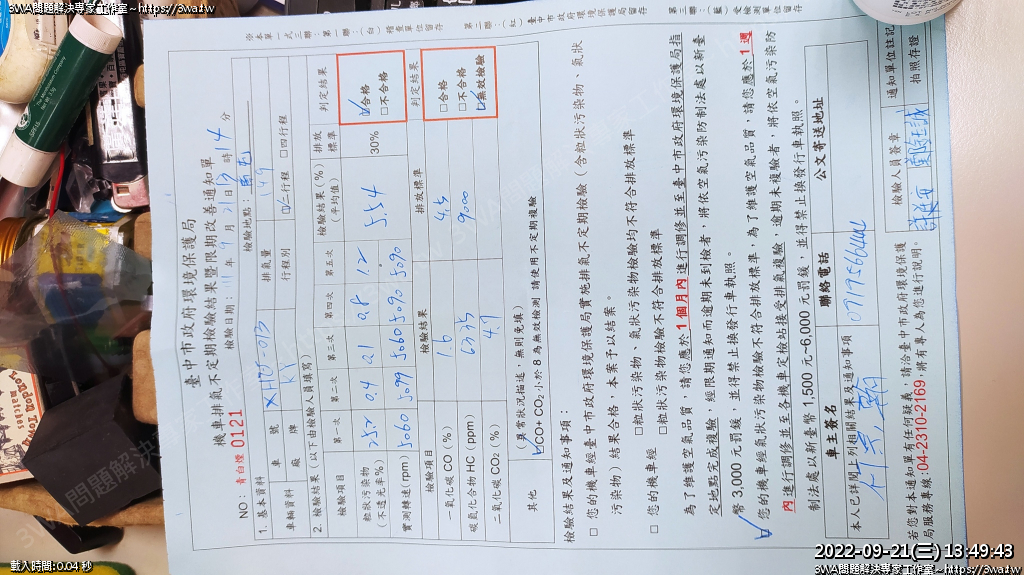 3WA問題解決專家工作室~https://3wa.tw
3WA問題解決專家工作室~https://3wa.tw
※本單一式三聯：第一聯：(白)稽查單位留存　第二聯：(紅)臺中市政府環境保護局留存　第三聯：(藍)受檢測單位留存
臺中市政府環境保護局
機車排氣不定期檢驗結果暨限期改善通知單
NO：青白煙 0121
檢驗日期：111年9月21日13時14分
1. 基本資料
檢驗地點：
車輛資料 車號 排氣量 149
廠牌 KY 行程別 ☑二行程 □四行程
2. 檢驗結果（以下由檢驗人員填寫）
檢驗項目 第一次 第二次 第三次 第四次 第五次 檢驗結果(%)(平均值) 排放標準 判定結果
粒狀污染物(不透光率%) 0.4 0.1 0.8 1.2 5.54 30% ☑合格 □不合格
實測轉速(rpm) 5060 5099 5060 5090 5090
檢驗項目 檢驗結果 排放標準 判定結果
一氧化碳 CO（%） 1.6 4.5 □合格
碳氫化合物 HC（ppm） 6335 9000 □不合格
二氧化碳 CO₂（%） 4.9 ☑無效檢驗
其他 （異常狀況描述，無則免填）
☑CO+ CO₂ 小於 8 為無效檢測 請使用不定期複驗
檢驗結果及通知事項：
□ 您的機車經臺中市政府環境保護局實施排氣不定期檢驗（含粒狀污染物、氣狀
污染物）結果合格，本案予以結案。
□ 您的機車經 □粒狀污染物、氣狀污染物檢驗均不符合排放標準
□粒狀污染物檢驗不符合排放標準
為了維護空氣品質，請您應於 1 個月內 進行調修並至臺中市政府環境保護局指
定地點完成複驗，經限期通知而逾期未到檢者，將依空氣污染防制法處以新臺
幣 3,000 元罰鍰，並得禁止換發行車執照。
☑ 您的機車經氣狀污染物檢驗不符合排放標準，為了維護空氣品質，請您應於 1 週
內 進行調修並至各機車定檢站接受排氣複驗，逾期未複驗者，將依空氣污染防
制法處以新臺幣 1,500 元~6,000 元罰鍰，並得禁止換發行車執照。
車主簽名 聯絡電話 公文寄送地址
本人已詳閱上列相關結果及通知事項
若您對本通知單有任何疑義，請洽臺中市政府環境保護
局服務專線：04-2310-2169，將有專人為您進行說明。
檢驗人員簽章 通知單位註記
拍照存證
載入時間:0.04 秒
2022-09-21(三) 13:49:43
3WA問題解決專家工作室~https://3wa.tw